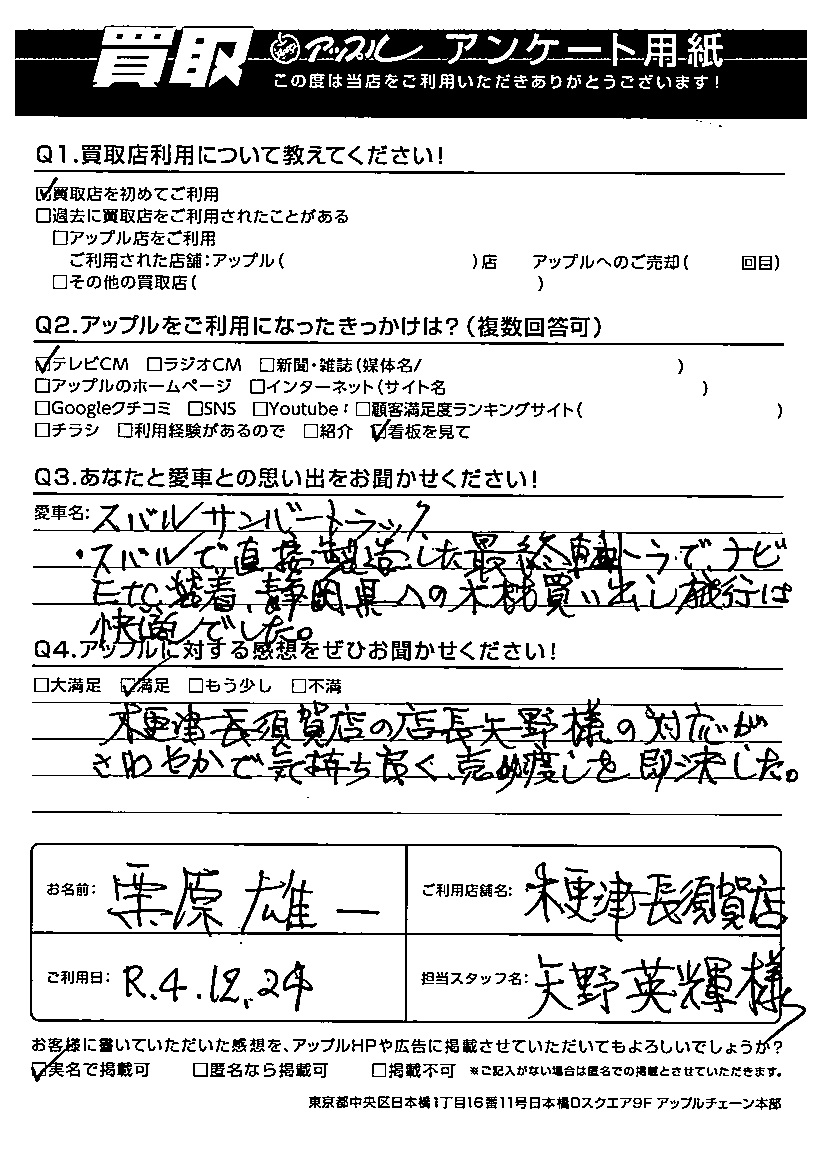 買取 アップル アンケート用紙
この度は当店をご利用いただきありがとうございます!
Q1.買取店利用について教えてください!
☑買取店を初めてご利用
□過去に買取店をご利用されたことがある
□アップル店をご利用
ご利用された店舗:アップル( )店 アップルへのご売却( 回目)
□その他の買取店( )
Q2.アップルをご利用になったきっかけは?(複数回答可)
☑テレビCM □ラジオCM □新聞・雑誌(媒体名/ )
□アップルのホームページ □インターネット(サイト名 )
□Googleクチコミ □SNS □Youtube □顧客満足度ランキングサイト( )
□チラシ □利用経験があるので □紹介 ☑看板を見て
Q3.あなたと愛車との思い出をお聞かせください!
愛車名: スバルサンバートラック
・スバルで直接製造した最終軽トラで、ナビ
Etc装着、静岡県への木材買い出し旅行は
快適でした。
Q4.アップルに対する感想をぜひお聞かせください!
□大満足 ☑満足 □もう少し □不満
木更津長須賀店の店長矢野様の対応が
さわやかで気持ち良く、売り渡しを即決した。
お名前: 栗原雄一 ご利用店舗名: 木更津長須賀店
ご利用日: R.4.12.24 担当スタッフ名: 矢野英輝様
お客様に書いていただいた感想を、アップルHPや広告に掲載させていただいてもよろしいでしょうか?
☑実名で掲載可 □匿名なら掲載可 □掲載不可 ※ご記入がない場合は匿名での掲載とさせていただきます。
東京都中央区日本橋1丁目16番11号日本橋Dスクエア9F アップルチェーン本部